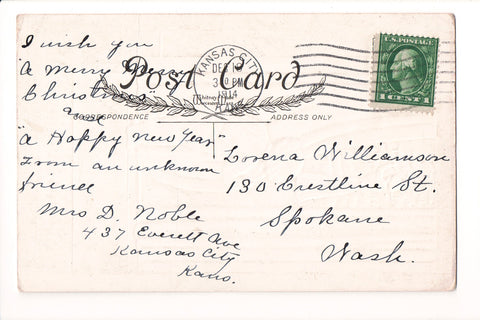 I wish you
"A Merry Merry
Christmas
and
"a Happy New Year"
From an unknown
friend
Mrs D. Noble
437 Everett Ave
Kansas City
Kans.
Post Card
Whitney Made
CORRESPONDENCE
ADDRESS ONLY
KANSAS CITY
DEC
3 30 PM
1914
KANS.
U.S. POSTAGE
1 CENT 1
Lorena Williamson
130 Crestline St.
Spokane
Wash.